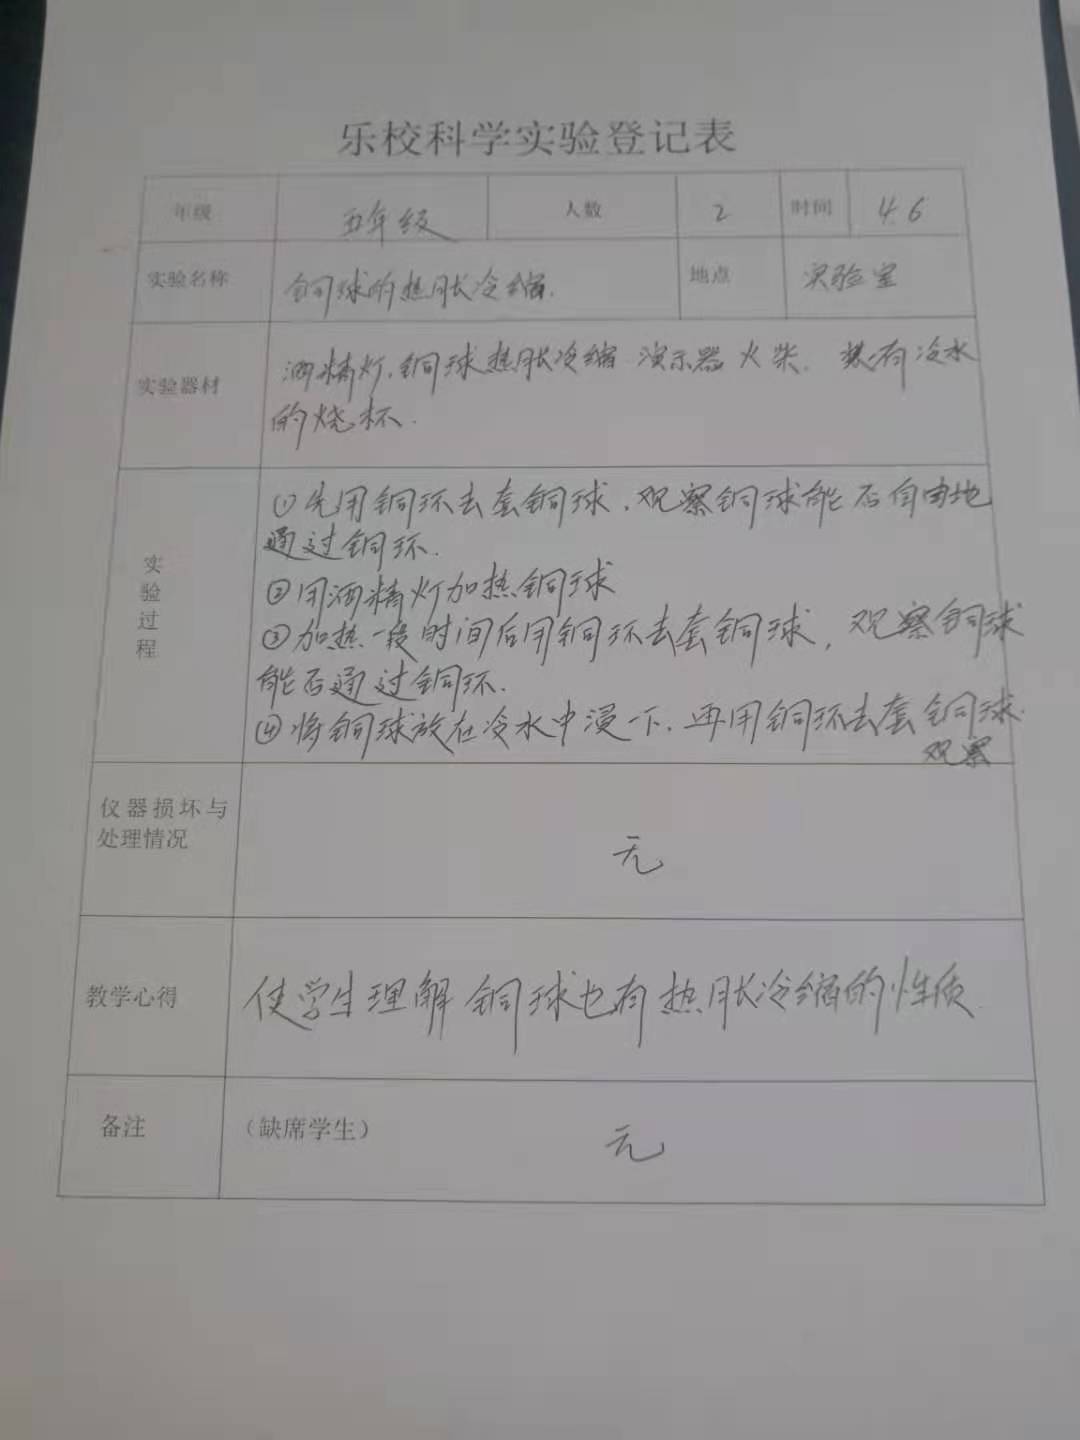 乐校科学实验登记表
年级 五年级 人数 2 时间 4.6
实验名称 铜球的热胀冷缩. 地点 实验室
实验器材 酒精灯.铜球热胀冷缩 演示器 火柴. 装有冷水
的烧杯.
实验过程 ①先用铜环去套铜球.观察铜球能否自由地
通过铜环.
②用酒精灯加热铜球
③加热一段时间后用铜环去套铜球, 观察铜球
能否通过铜环.
④将铜球放在冷水中浸一下.再用铜环去套铜球.
观察
仪器损坏与
处理情况
无
教学心得 使学生理解铜球也有热胀冷缩的性质.
备注 (缺席学生) 无